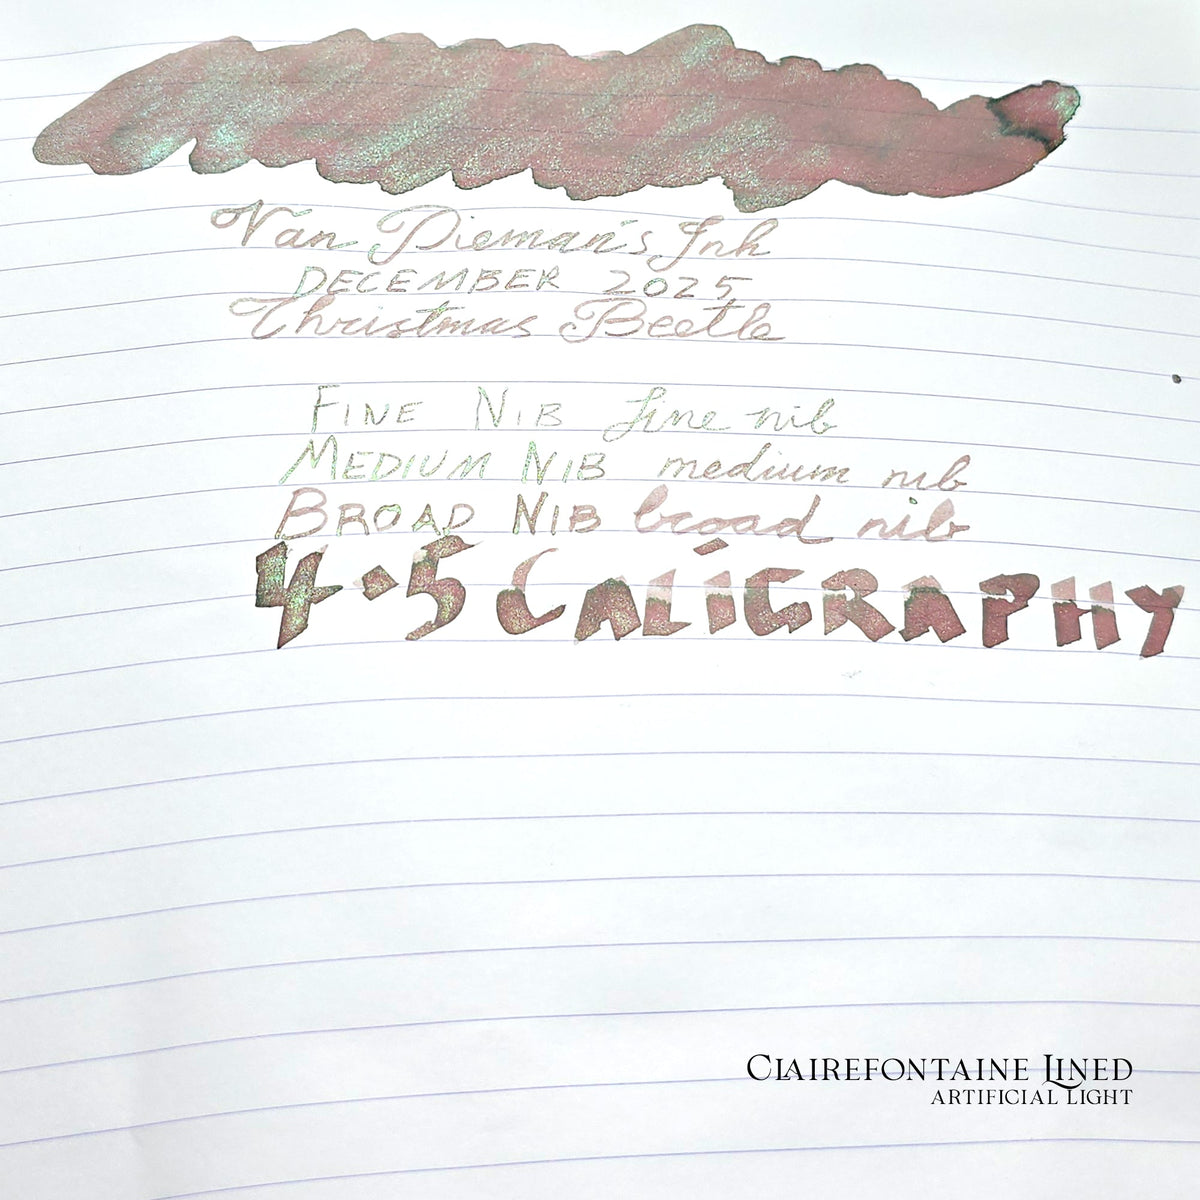 Van Dieman's Ink
DECEMBER 2025
Christmas Beetle
FINE NIB fine nib
MEDIUM NIB medium nib
BROAD NIB broad nib
4.5 CALIGRAPHY
CLAIREFONTAINE LINED
ARTIFICIAL LIGHT